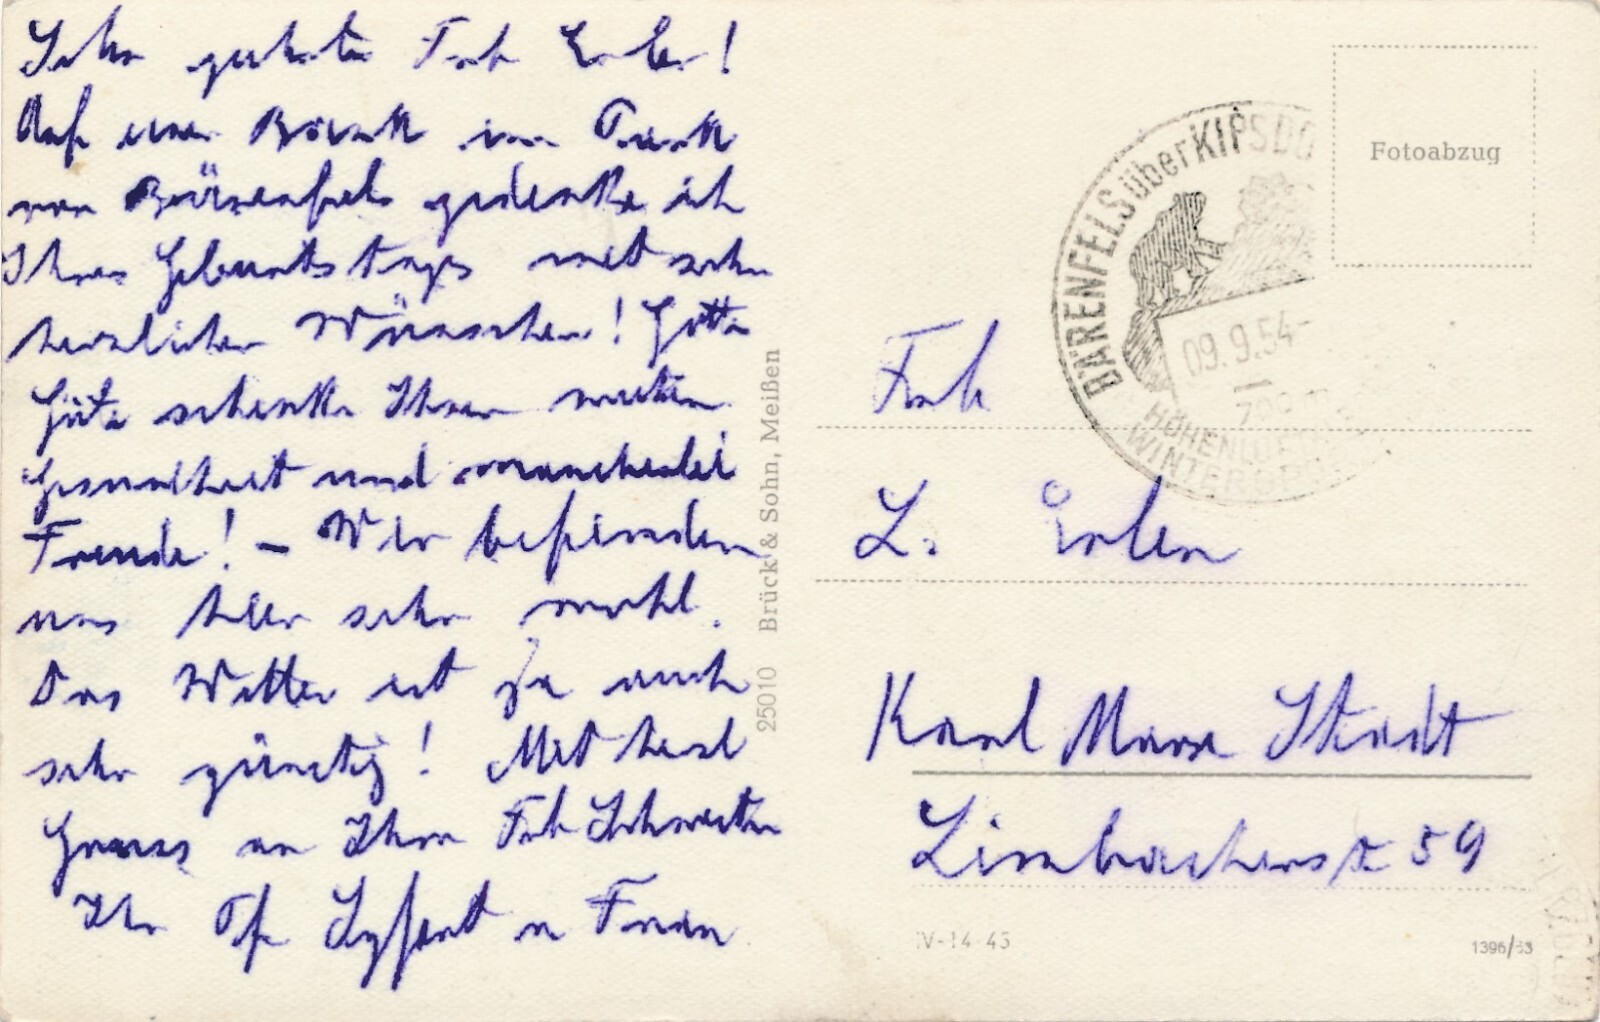 Sehr geehrte Frl. Erler!
Auf einer Bank im Park
von Bärenfels gedenke ich
Ihres Geburtstages mit sehr
herzlichen Wünschen! Gottes
Güte schenke Ihnen weiter
Gesundheit und mancherlei
Freude! – Wir befinden
uns hier sehr wohl.
Das Wetter ist ja auch
sehr günstig! Mit herzl
Gruss an Ihre Frl. Schwester
Ihr Pf. Seyfert u Frau
25010 Brück & Sohn, Meißen
BÄRENFELS über KIPSDO
09.9.54-
HÖHENLUFT
WINTERSPO
Fotoabzug
Frl.
L. Erler
Karl Marx Stadt
Limbacherstr 59
IV-14-45
1396/53